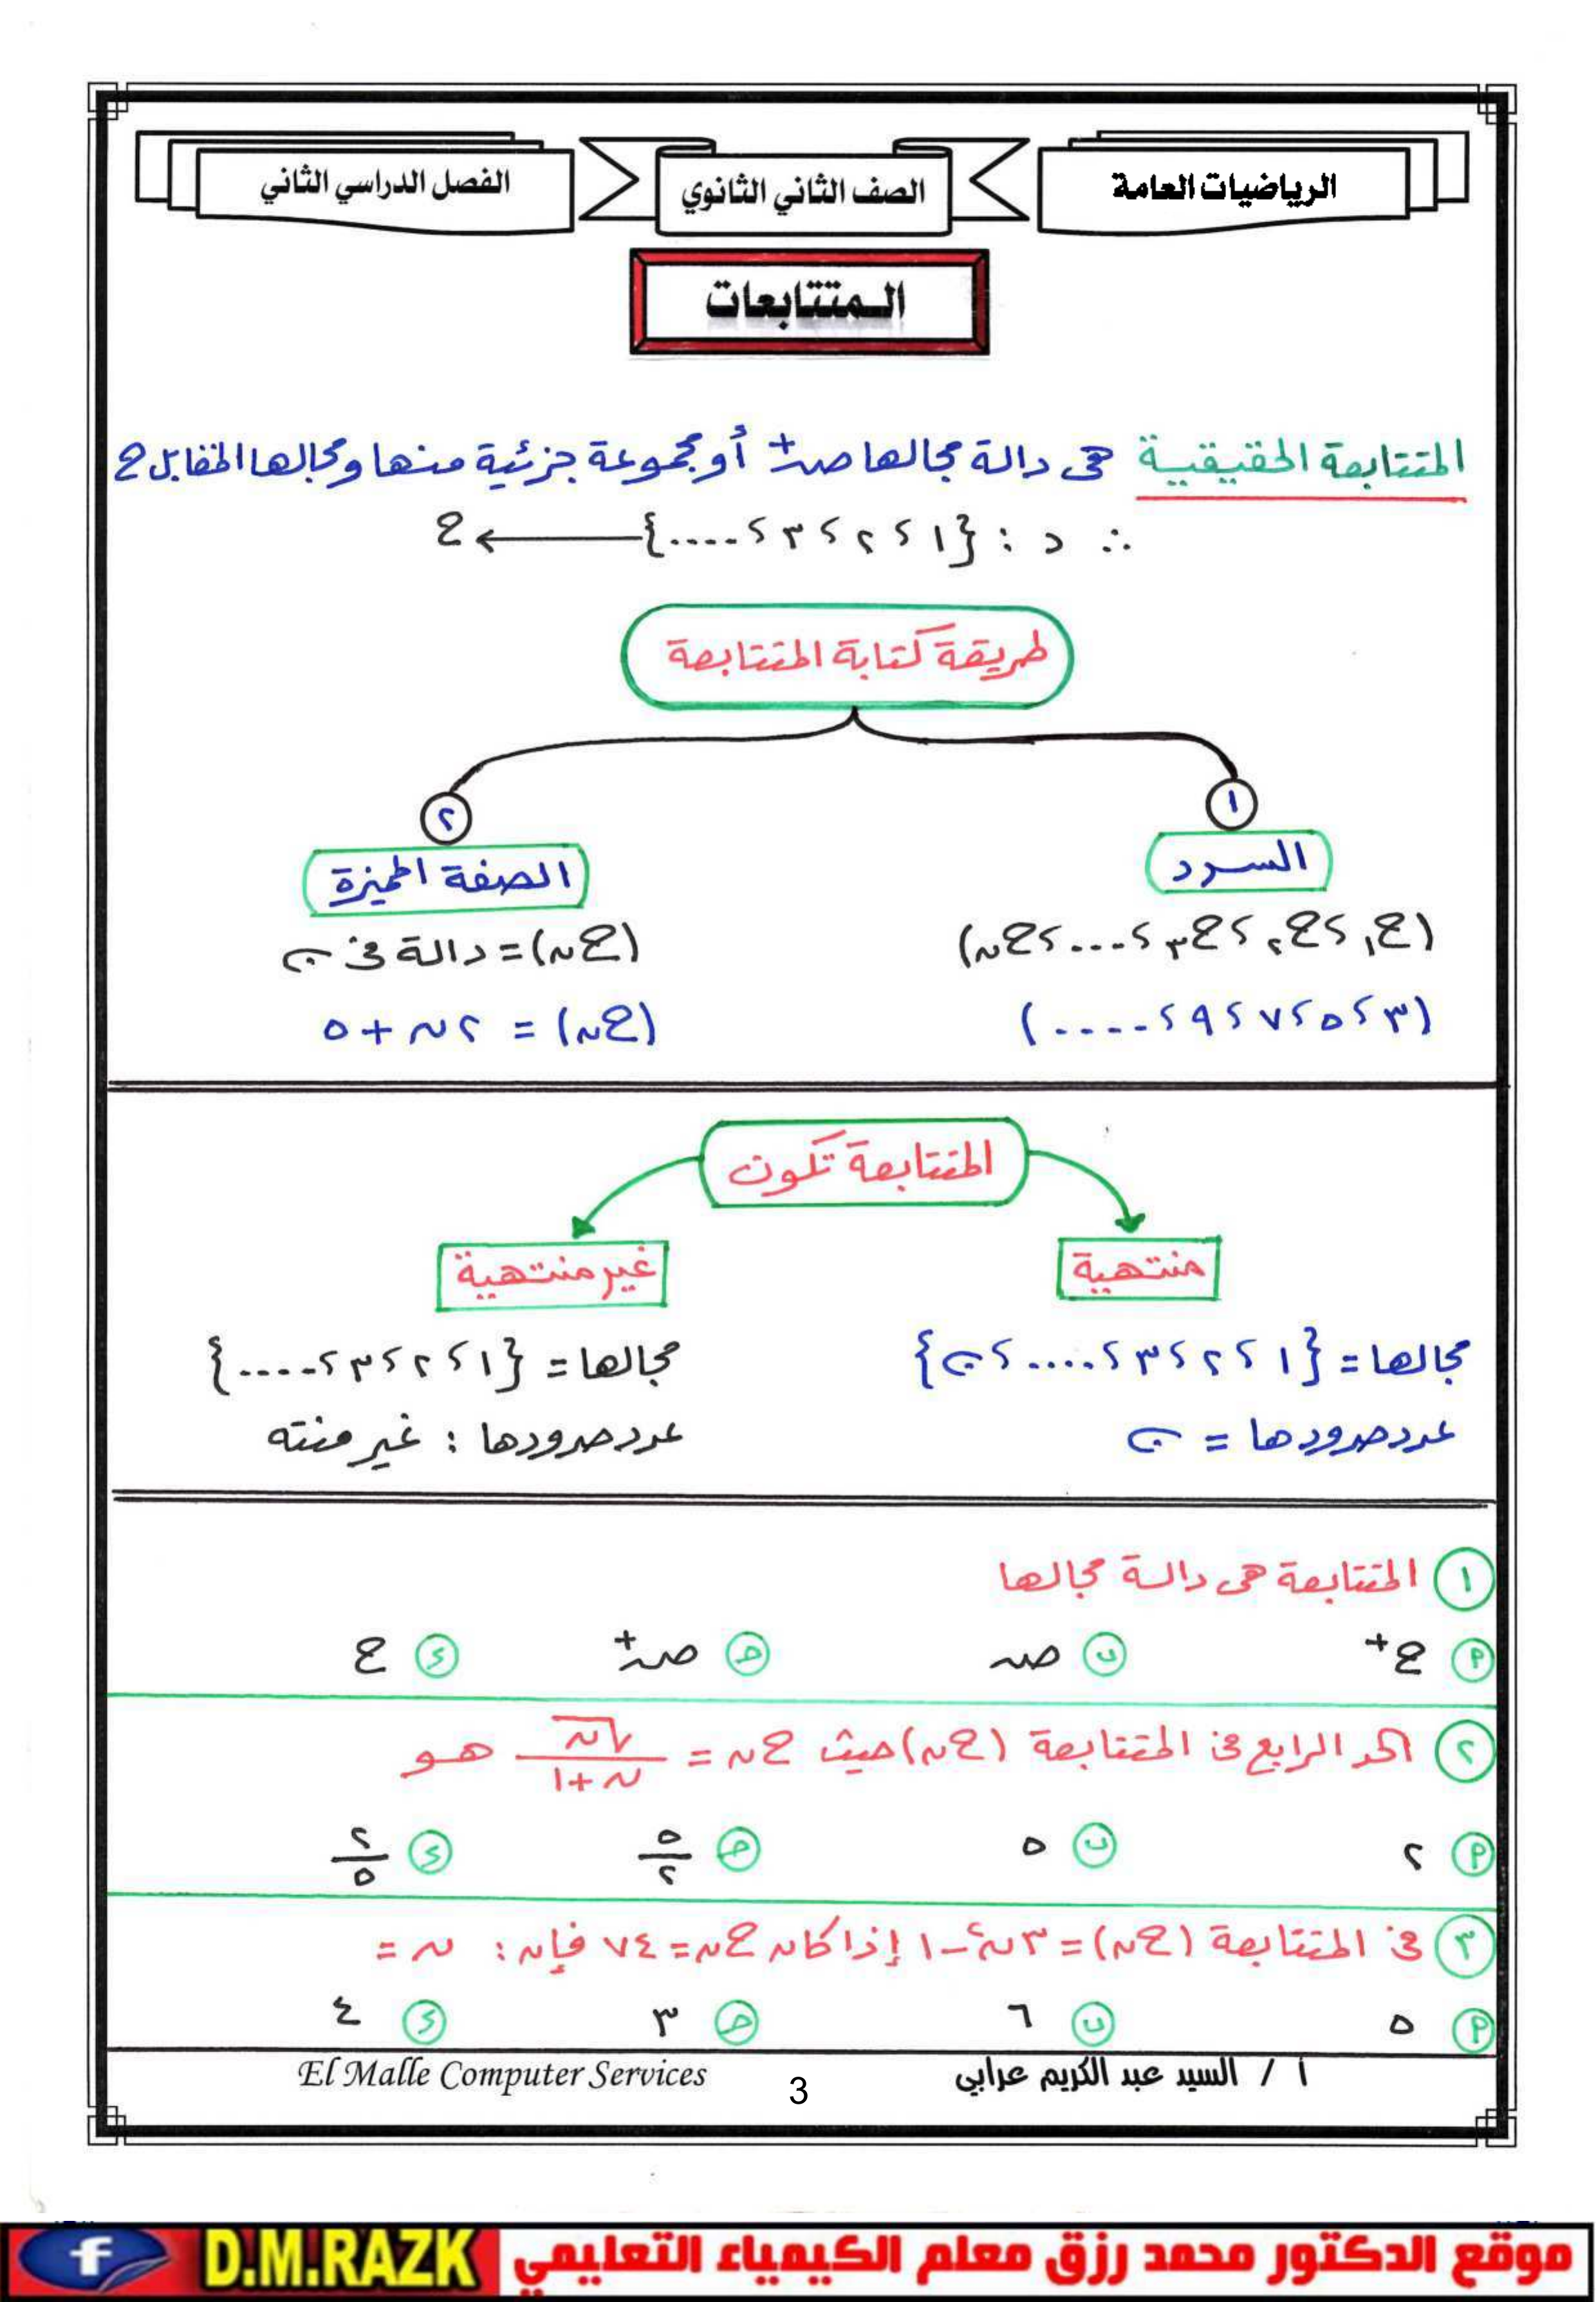 الرياضيات العامة
الصف الثاني الثانوي
الفصل الدراسي الثاني
المتتابعات
المتتابعة الحقيقية هى دالة مجالها صہ⁺ أو مجموعة جزئية منها ومجالها المقابل ح
∴ د : {١ ، ٢ ، ٣ ، ....} ⟵ ح
طريقة كتابة المتتابعة
١
السرد
(ح₁ ، ح₂ ، ح₃ ، ... ، حں)
(٣ ، ٥ ، ٧ ، ٩ ، ....)
٢
الصفة المميزة
(حں) = دالة فى ن
(حں) = ٢ں + ٥
المتتابعة تكون
منتهية
مجالها = {١ ، ٢ ، ٣ ، .... ، ن}
عدد حدودها = ن
غير منتهية
مجالها = {١ ، ٢ ، ٣ ، ....}
عدد حدودها : غير منته
١ المتتابعة هى دالة مجالها
م ح⁺ ب صہ ح صہ⁺ د ح
٢ الحد الرابع فى المتتابعة (حں) حيث حں = √ں / (ں + ١) هو
م ٢ ب ٥ ح ٥/٢ د ٢/٥
٣ فى المتتابعة (حں) = ٣ں² − ١ إذا كان حں = ٧٤ فإن : ں =
م ٥ ب ٦ ح ٣ د ٤
أ / السيد عبد الكريم عرابي
3
El Malle Computer Services
موقع الدكتور محمد رزق معلم الكيمياء التعليمي D.M.RAZK f